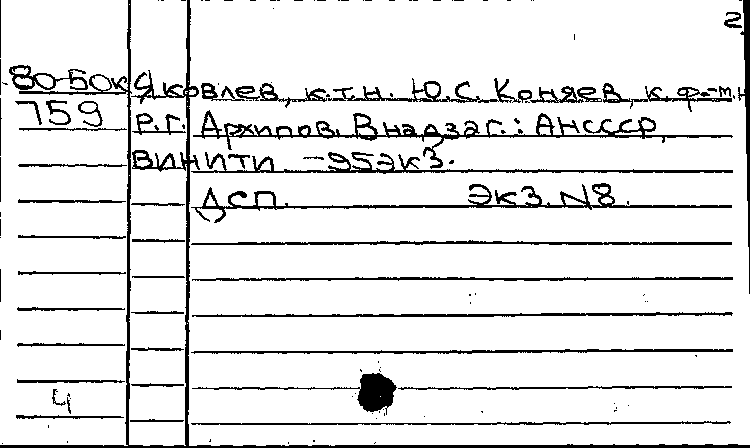 2
80-50к Яковлев, к.т.н. Ю.С. Коняев, к.ф.-м.н
759 Р.Г. Архипов. В надзаг.: АН СССР,
ВИНИТИ. -95экз.
ДСП. Экз. N8.
4